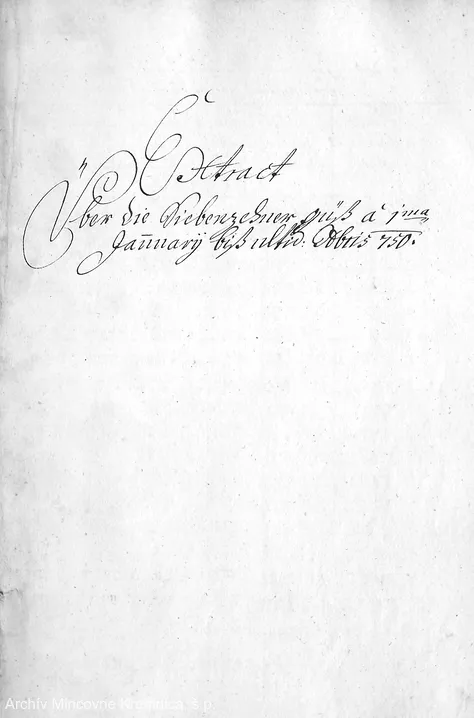 Extract
Über die Siebenzehner güß a 1ma
Januarij biß ultid: Xbris 750.
Archív Mincovne Kremnica, š.p.